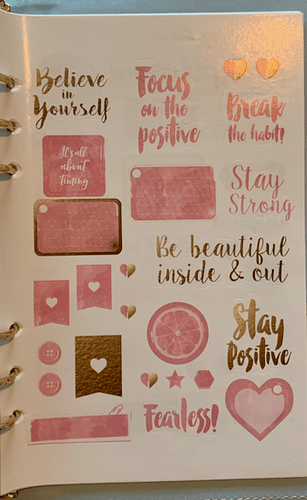 Believe
in
Yourself
Focus
on the
positive
Break
the habit!
It's all
about
timing
Stay
Strong
Be beautiful
inside & out
Stay
Positive
Fearless!